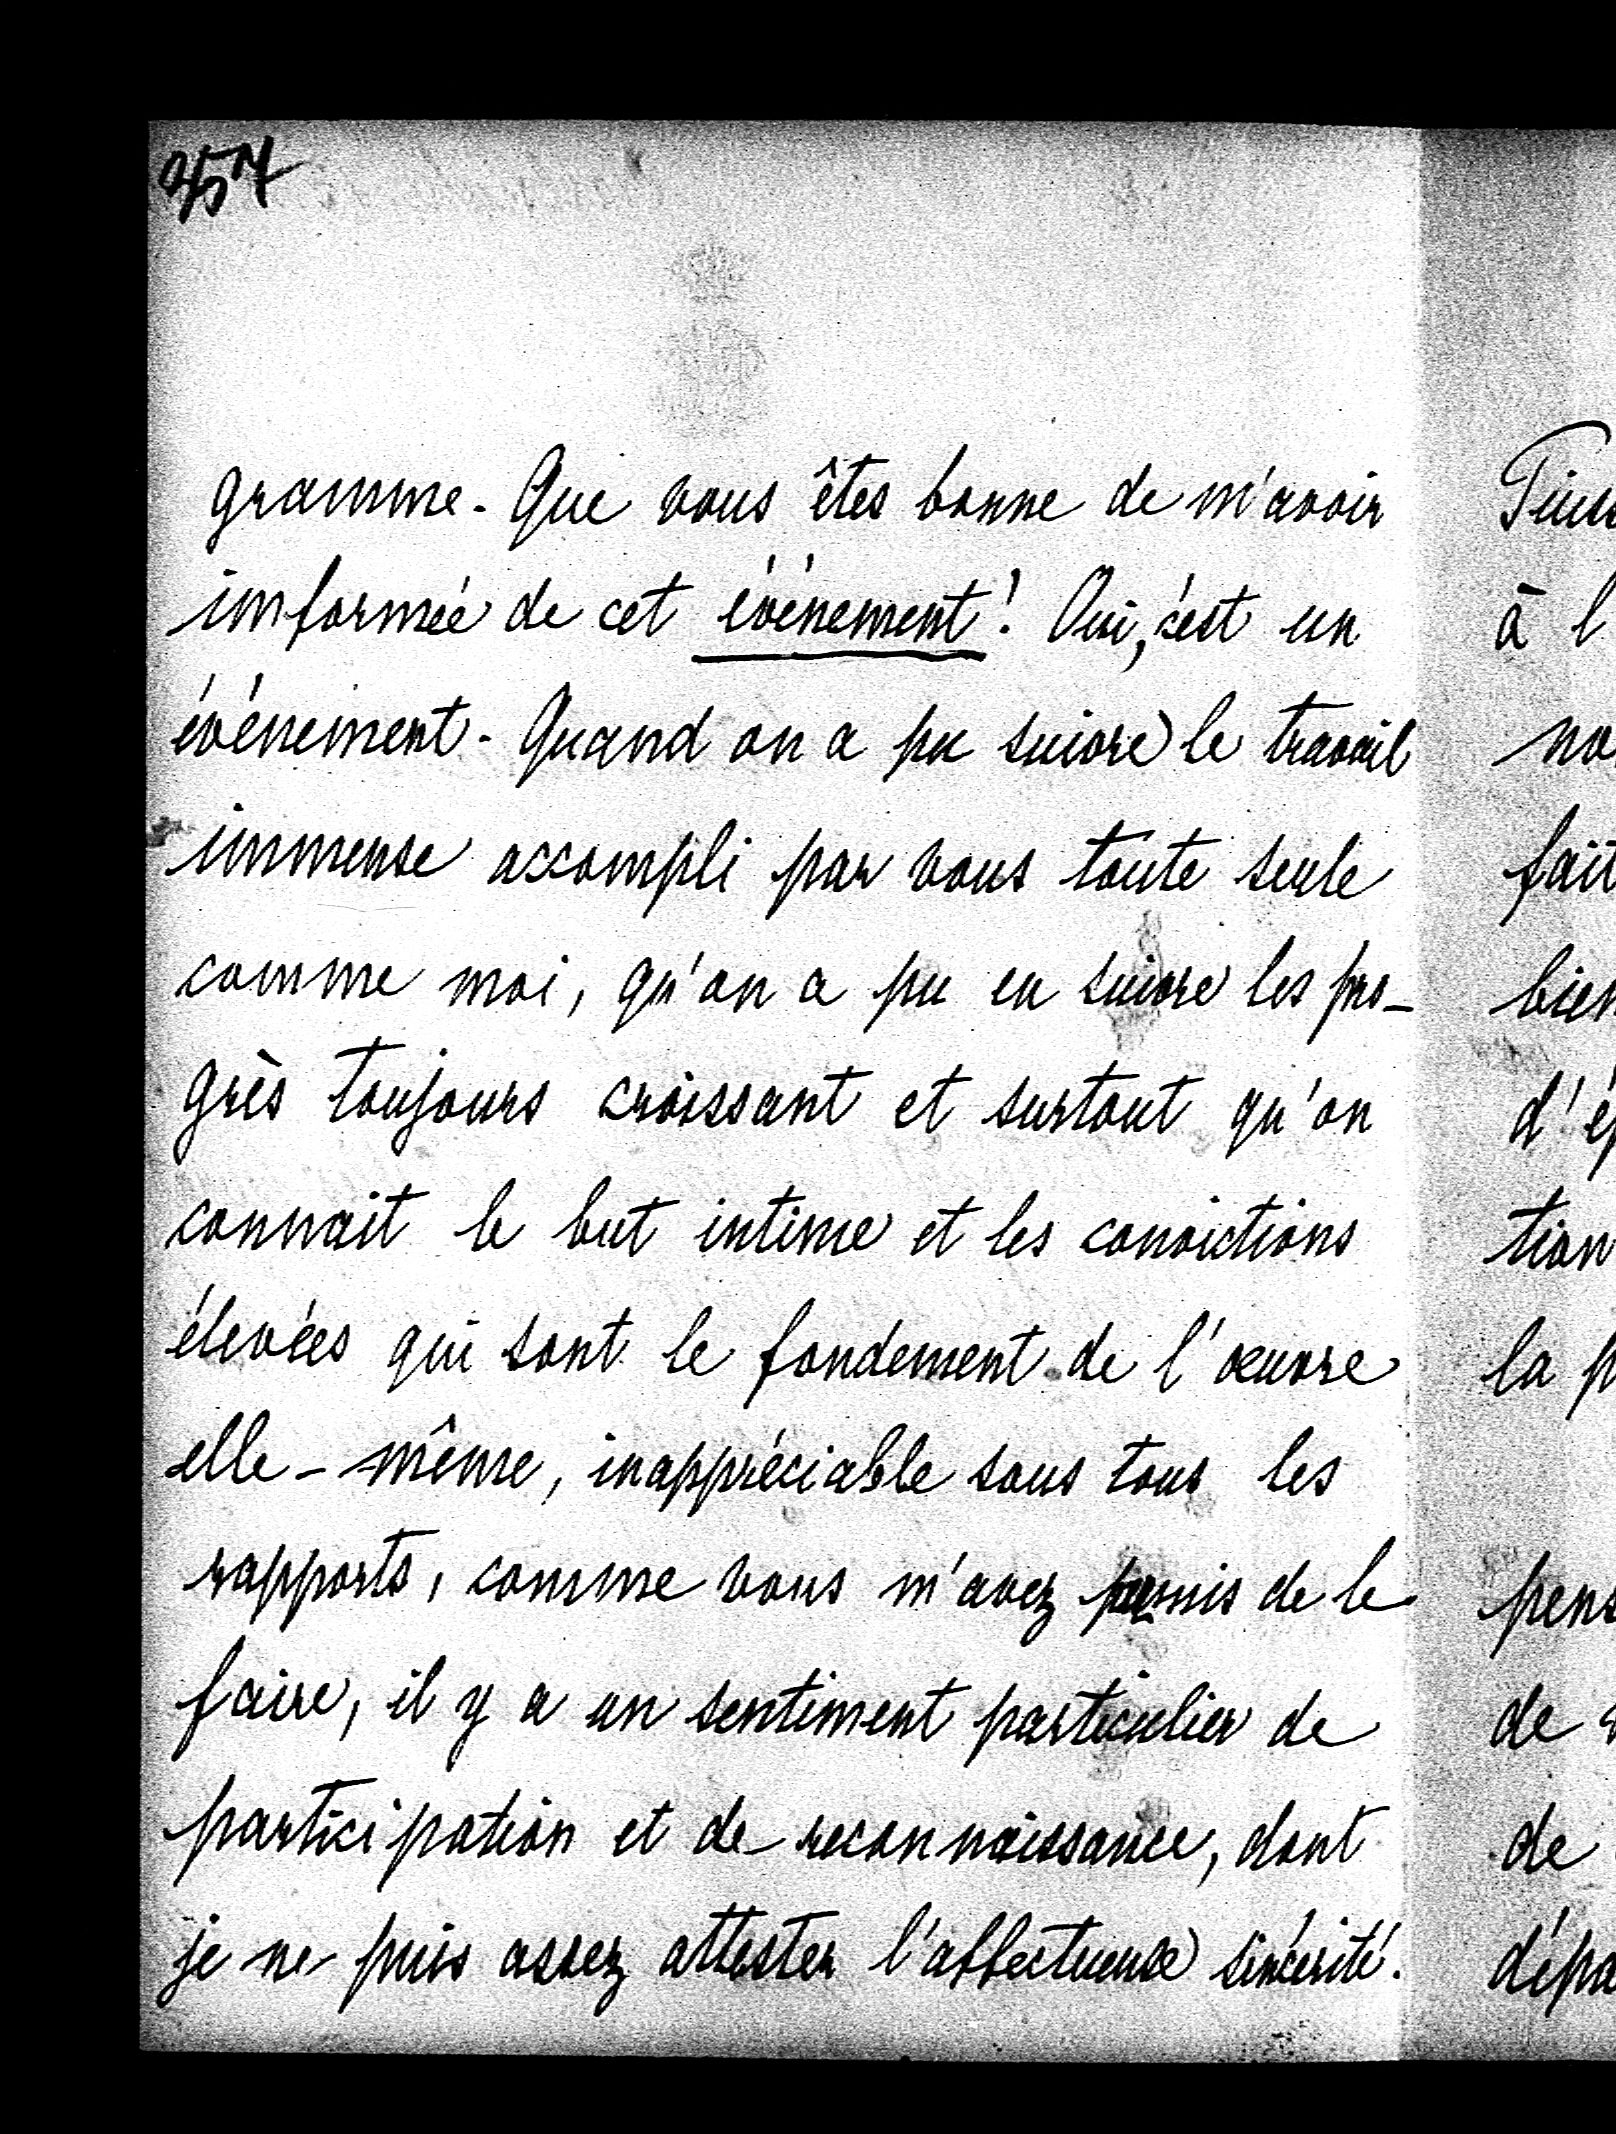 257
gramme. Que vous êtes bonne de m'avoir
informée de cet événement! Oui, c'est un
événement. Quand on a pu suivre le travail
immense accompli par vous toute seule
comme moi, qu'on a pu en suivre les pro-
grès toujours croissant et surtout qu'on
connait le but intime et les convictions
élevées qui sont le fondement de l'œuvre
elle-même, inappréciable sous tous les
rapports, comme vous m'avez permis de le
faire, il y a un sentiment particulier de
participation et de reconnaissance, dont
je ne puis assez attester l'affectueuse sincérité.
à l
fait
bien
d'ép
tion
la p
pens
de
de
dépa